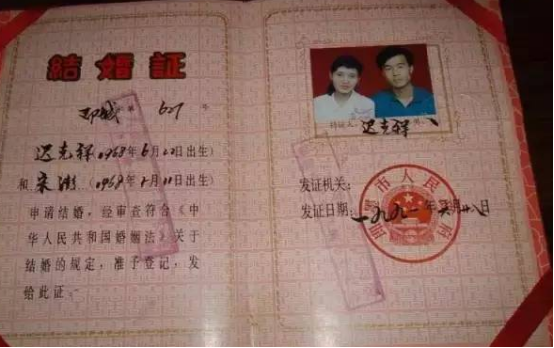 結婚証
627号
迟克祥(1968年6月12日出生)
和宋
(1968年1月11日出生)
申请结婚，经审查符合《中
华人民共和国婚姻法》关于
结婚的规定，准予登记，发
给此证。
持证人迟克祥
发证机关：
发证日期：一九九一年
月廿八日
市人民